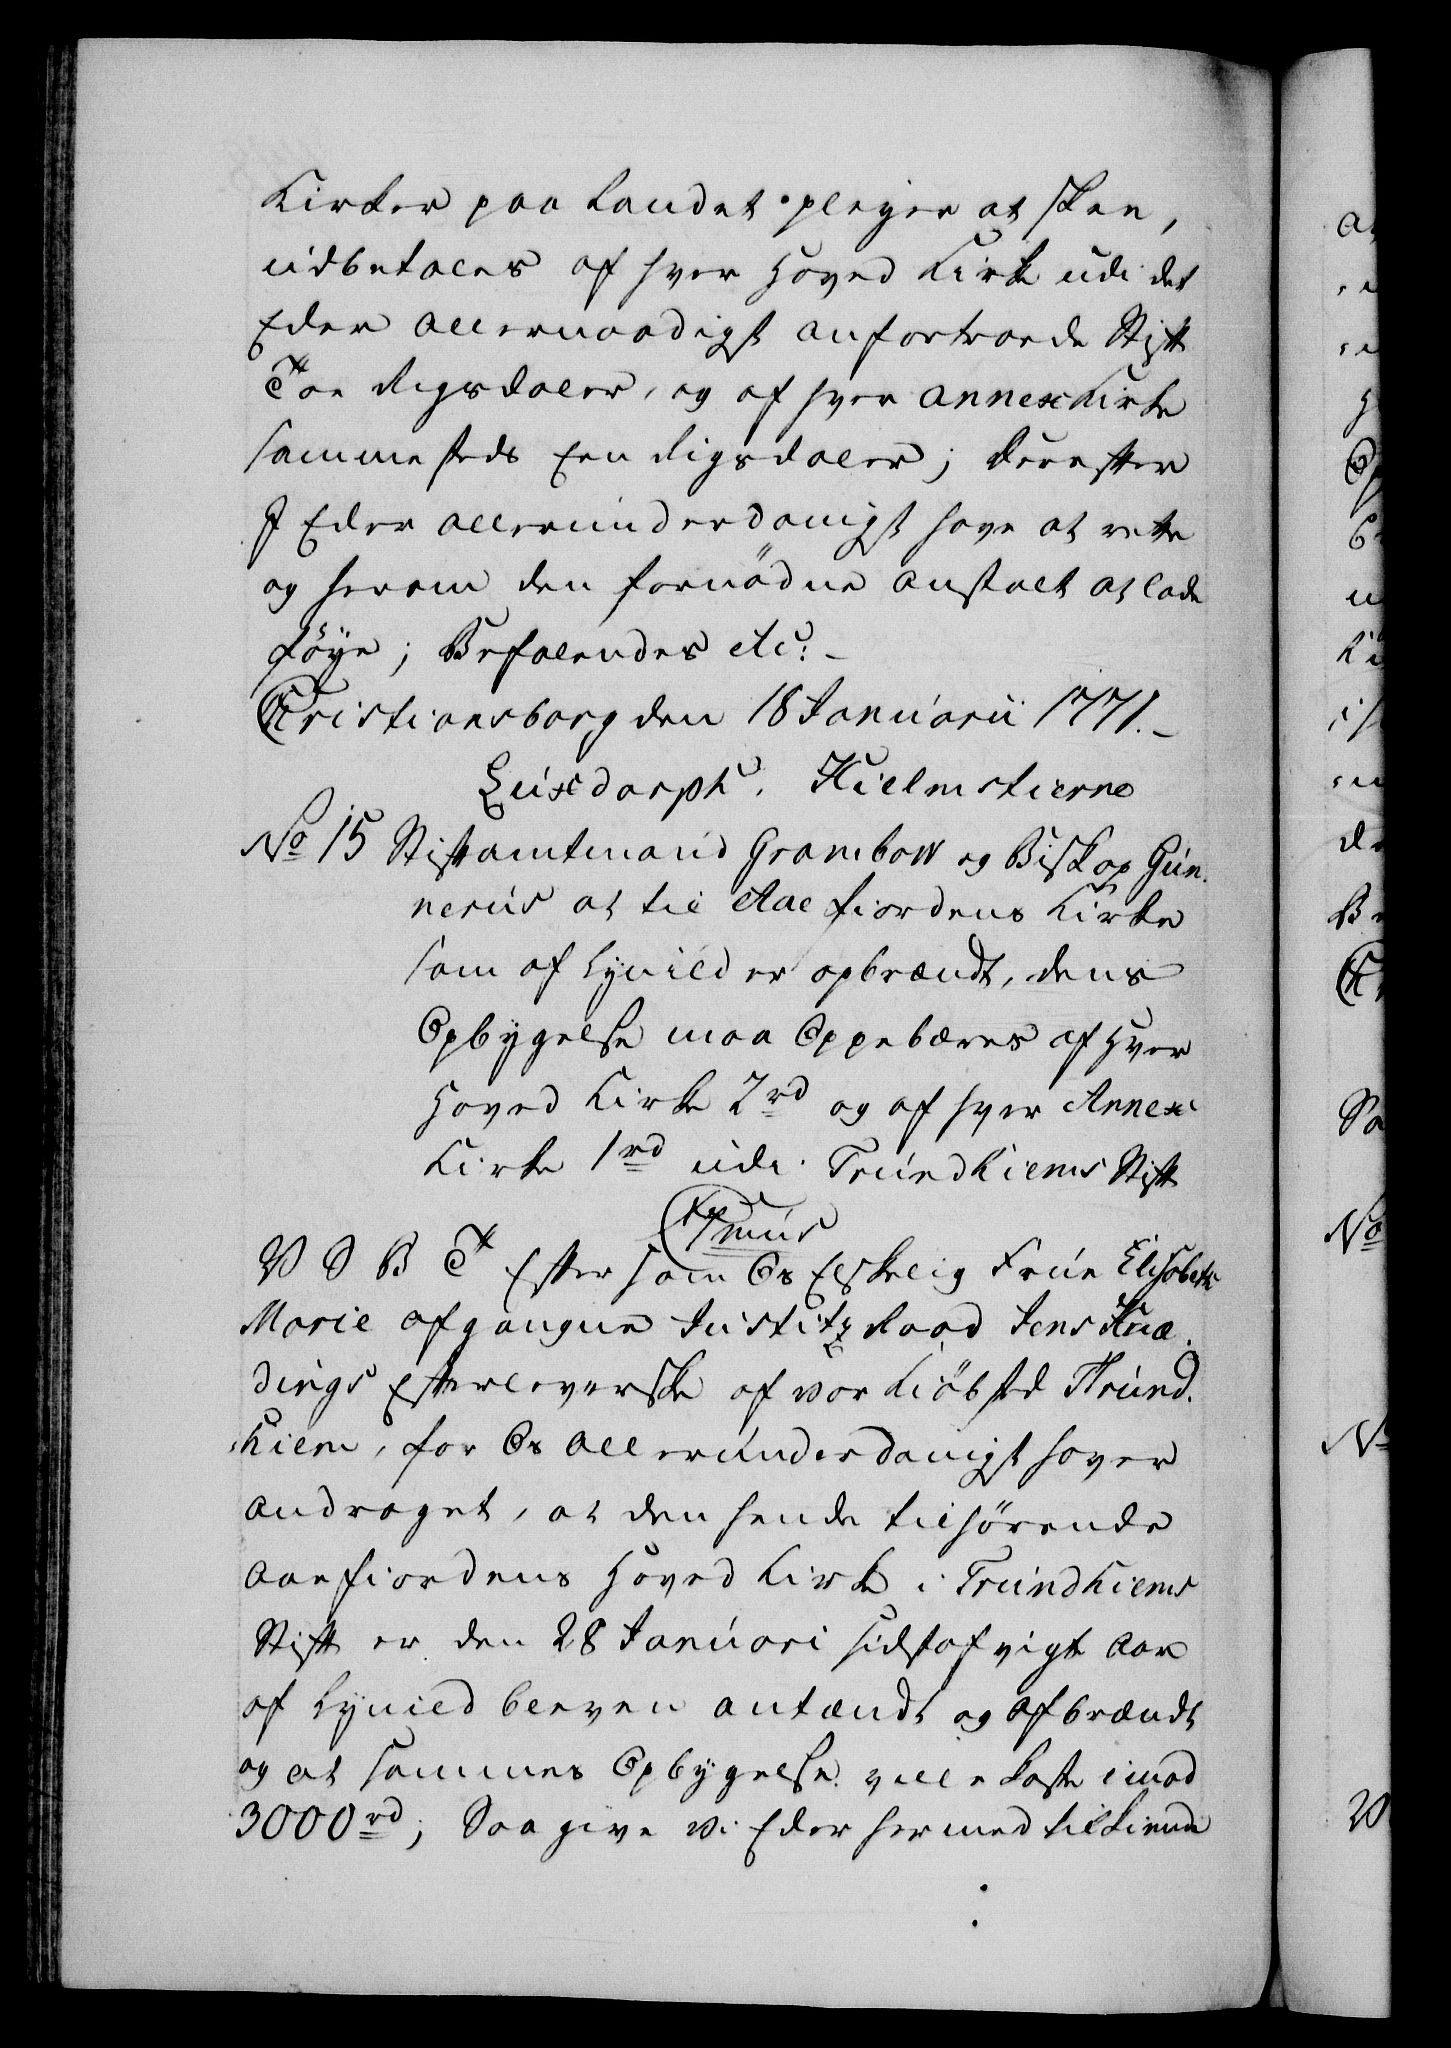 Kirker paa Landet pleyer at skee,
udbetales af hver Hoved Kirke udi det
Eder allernaadigst anfortroede Stift
Toe Rigsdaler, og af hver annex Kirke
sammesteds Een Rigsdaler; derefter
I Eder allerunderdanigst have at rette
og herom den fornödne anstalt at lade
föye; Befalendes etc: -
Christiansborg den 18 Januarii 1771. -
Luxdorph. Hielmstierne
No 15 Stiftamtmand Grambow og Biskop Gün-
nerus at til Aaefiordens Kirke
som af Lynild er opbrændt, dens
Opbygelse maa Oppebæres af Hver
Hoved Kirke 2 rd og af hver Annex
Kirke 1 rd udi Trundhiems Stift
Chr: 7mus
V S B T Eftersom Os Elskelig Frue Elisabeth
Marie afgangne Justitz Raad Jens Hvæ-
dings Efterleverske af vor Kiöbsted Thrund-
hiem, for Os allerunderdanigst haver
andraget, at den hende tilhörende
Aaefiordens Hoved Kirke i Trundhiems
Stift er den 28 Januari sidstafvigte Aar
af Lynild bleven antændt og afbrændt
og at sammes Opbygelse ville koste imod
3000 rd; Saa give vi Eder hermed tilkiende